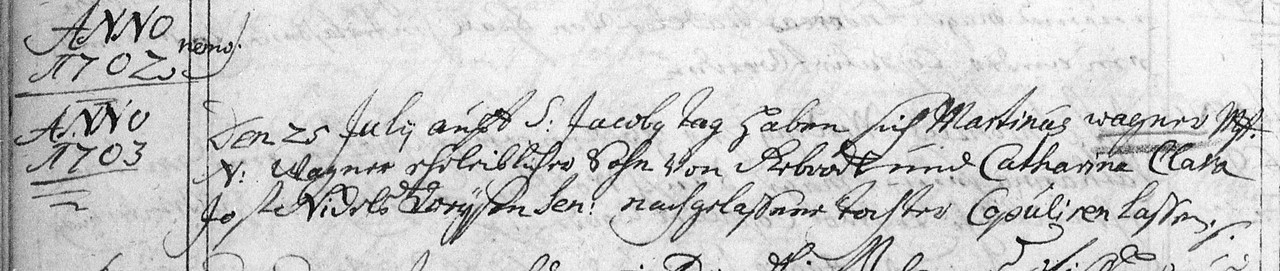 ANNO
1702. nemo.
ANNO
1703
Den 25 July auff S: Jacoby tag haben sich Martinus wagner
N: Wagner ehleiblicher Sohn von und Catharina Clara
Jost Nidels Sen: nachgelassene tochter Copuliren lassen.